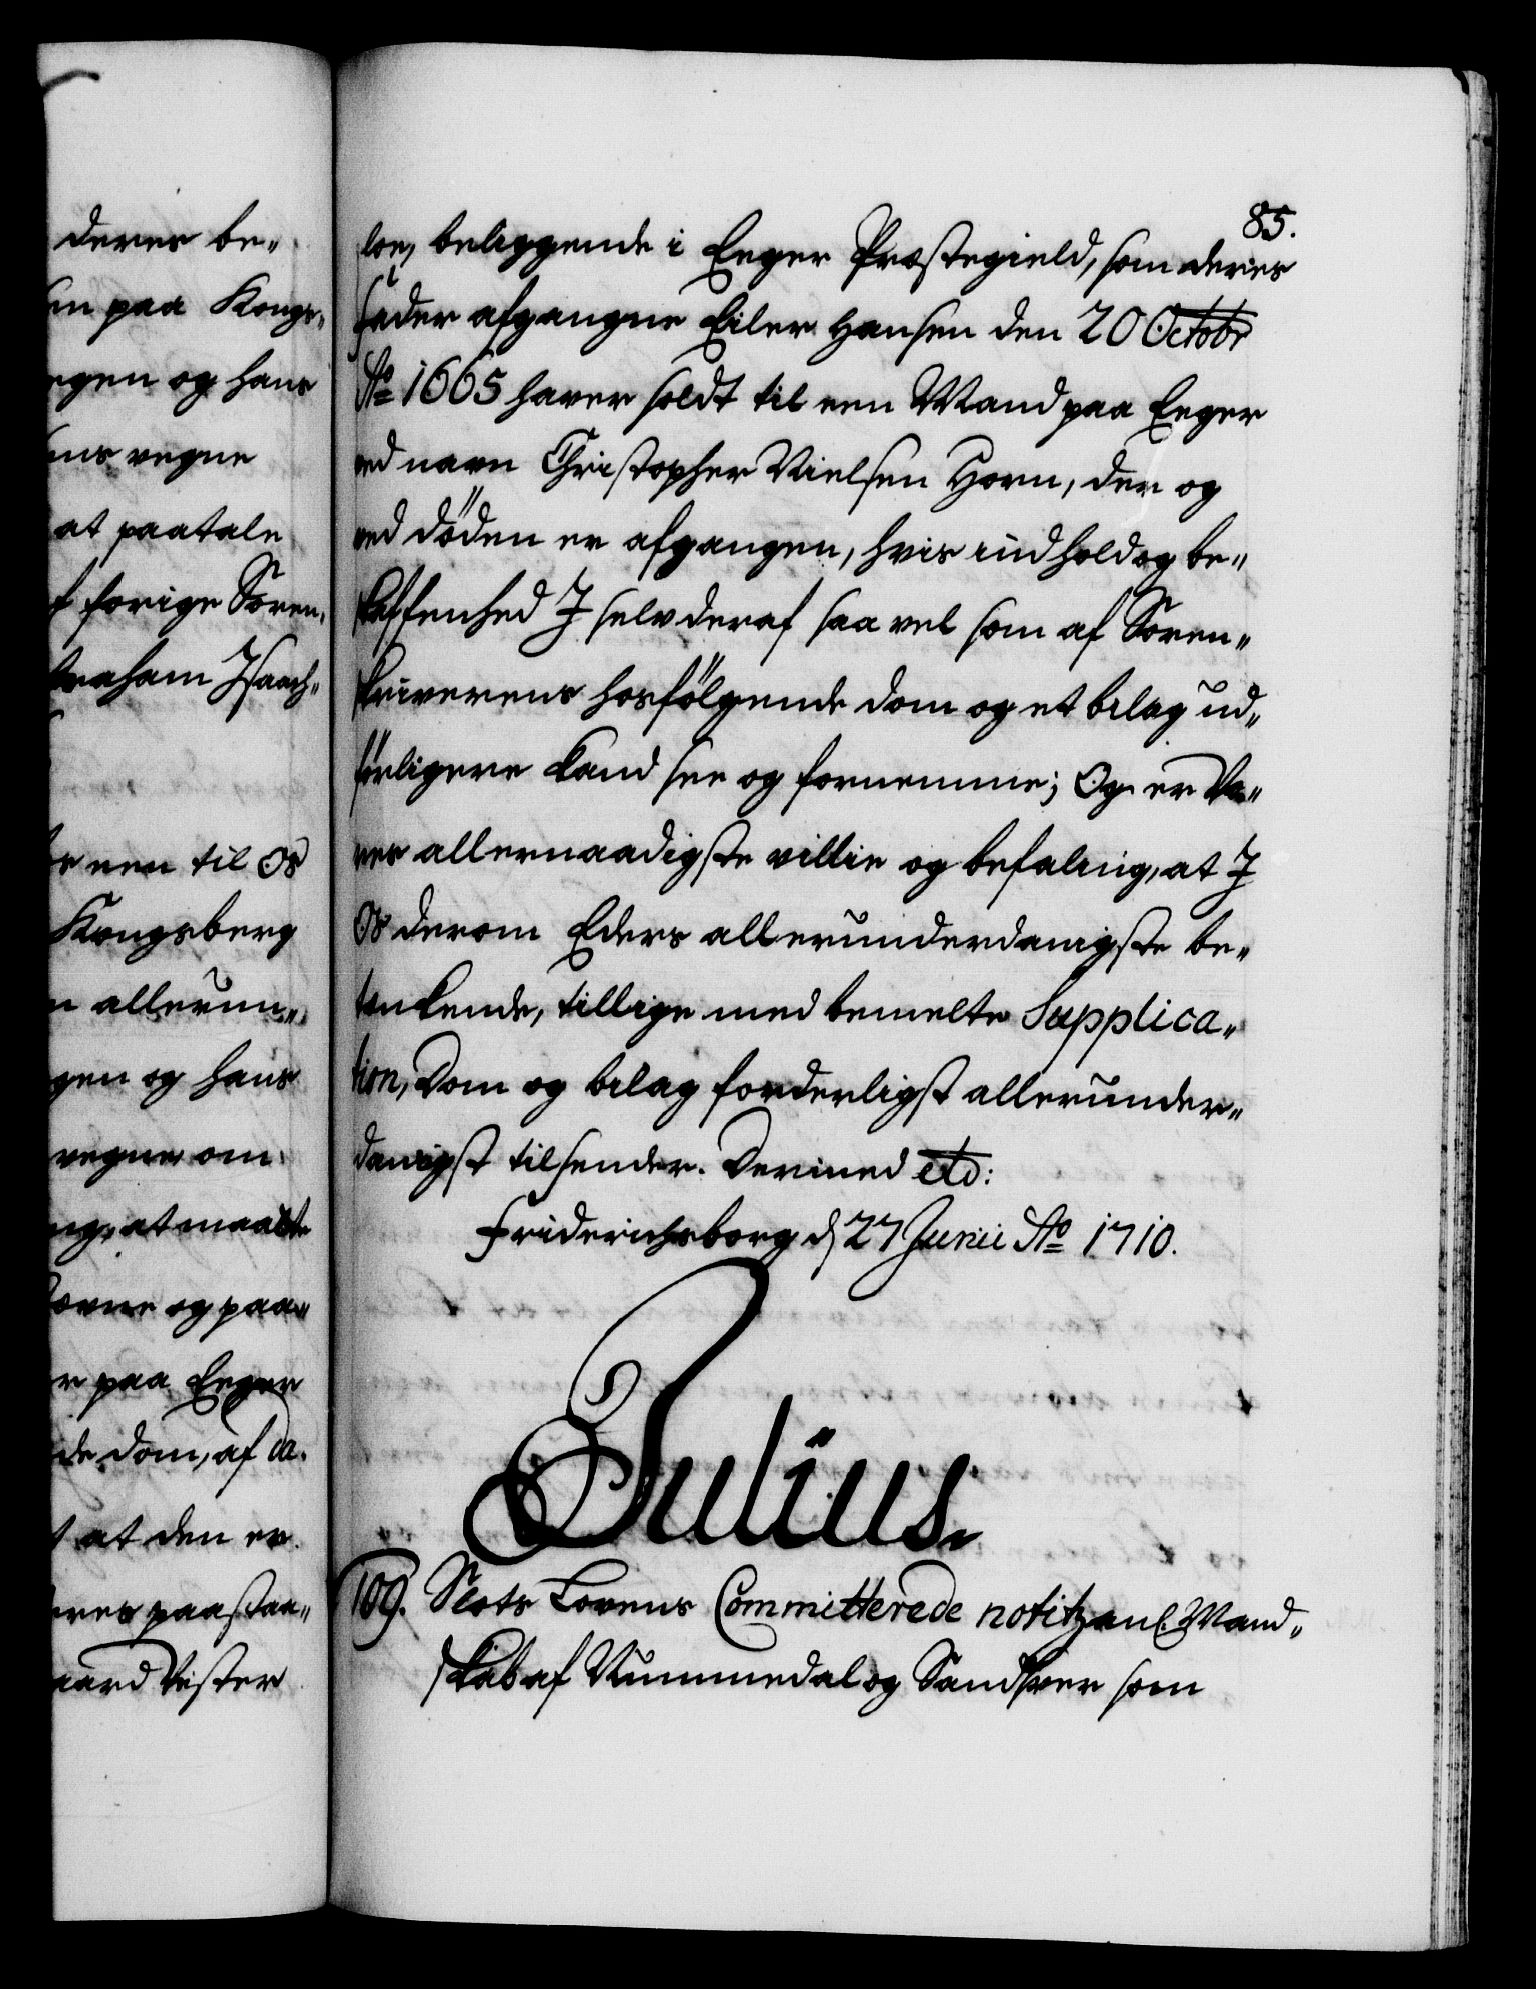 deres be„
paa Kongs„
egen og hans
vegne
at paatale
forige Soren„
Abraham Isaach„
een til Os
Kongsberg
allerun„
egen og hans
vegne om
at maatte
og paa„
paa Eeger
de dom, af da„
at den er
paastaa„
Vister
85.
loe, beliggende i Eeger Præstegield, som deris
fader afgangne Eiler Hansen den 20 Octobr
Ao 1665 haver soldt til een Mand paa Eeger
ved navn Christopher Nielsen Horn, der og
ved döden er afgangen, hvis indhold og be„
skaffenhed I self deraf saa vel som af Soren„
skriverens hosfölgende dom og et bilag ud„
förligere kand see og fornemme; Og er Vo„
res allernaadigste villie og befaling, at I
Os derom Eders allerunderdanigste be„
tenkende, tillige med bemelte Supplica„
tion, Dom og bilag forderligst allerunder„
danigst tilsender. Dermed etc:
Friderichsborg d 27 Junii Ao 1710.
Julius.
109. Slots Lovens Committerede notitz anl. Mand„
skab af Nummedal og Sandsver som